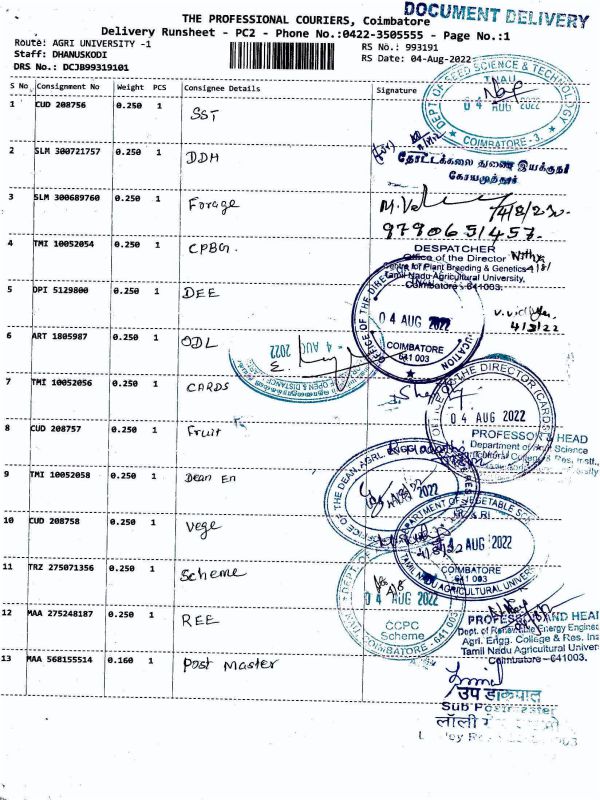 DOCUMENT DELIVERY
THE PROFESSIONAL COURIERS, Coimbatore
Delivery Runsheet - PC2 - Phone No.:0422-3505555 - Page No.:1
Route: AGRI UNIVERSITY -1
RS No.: 993191
Staff: DHANUSKODI
RS Date: 04-Aug-2022
DRS No.: DCJB99319101
S No Consignment No Weight PCS Consignee Details Signature
1 CUD 208756 0.250 1 SST
DEPT OF SEED SCIENCE & TECHNOLOGY
TNAU
04 AUG 2022
COIMBATORE - 3.
2 SLM 300721757 0.250 1 DDH
தோட்டக்கலை துணை இயக்குநர்
கோயமுத்தூர்
3 SLM 300689760 0.250 1 Forage
9790651457
4 TMI 10052054 0.250 1 CPBG.
DESPATCHER
Office of the Director
Centre for Plant Breeding & Genetics
Tamil Nadu Agricultural University,
Coimbatore - 641003.
5 DPI 5129800 0.250 1 DEE
04 AUG 2022
COIMBATORE
641 003
4/8/22
6 ART 1805987 0.250 1 ODL
4 AUG 2022
7 TMI 10052056 0.250 1 CARDS
OFFICE OF THE DIRECTOR (CARDS)
04 AUG 2022
8 CUD 208757 0.250 1 Fruit
PROFESSOR & HEAD
9 TMI 10052058 0.250 1 Dean En
OFFICE OF THE DEAN, AGRL.
2022
10 CUD 208758 0.250 1 Vege
DEPARTMENT OF VEGETABLE
4 AUG 2022
COIMBATORE
641 003
TAMIL NADU AGRICULTURAL UNIVERSITY
11 TRZ 275071356 0.250 1 Scheme
04 AUG 2022
CCPC
Scheme
COIMBATORE - 641 003
12 MAA 275248187 0.250 1 REE
PROFESSOR AND HEAD
Dept. of Renewable Energy Engineer
Agri. Engg. College & Res. Ins
Tamil Nadu Agricultural Universi
Coimbatore - 641003.
13 MAA 568155514 0.160 1 Post Master
उप डाकपाल
Sub Postmaster
लॉली